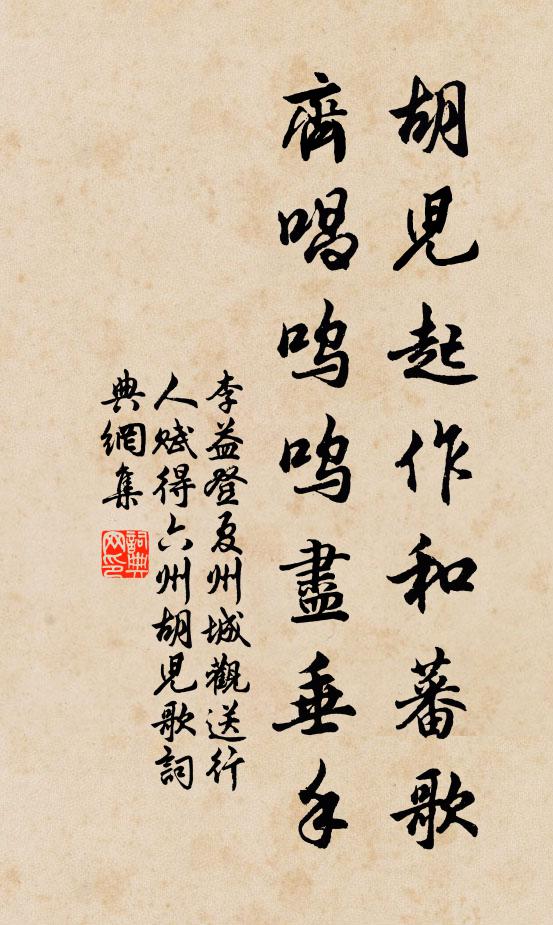 胡兒起作和蕃歌
齊唱嗚嗚盡垂手
李益登夏州城觀送行
人賦得六州胡兒歌詞
典網集
詞典網印